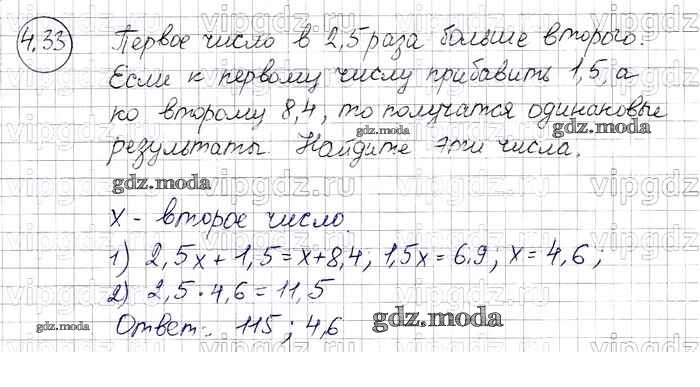 4.33
Первое число в 2,5 раза больше второго.
Если к первому числу прибавить 1,5, а
ко второму 8,4, то получатся одинаковые
gdz.moda gdz.moda
результаты. Найдите эти числа.
gdz.moda
x - второе число.
1) 2,5x + 1,5 = x + 8,4; 1,5x = 6.9; x = 4,6;
2) 2,5 · 4,6 = 11,5
gdz.moda
Ответ: 115; 4,6 gdz.moda
vipgdz.ru